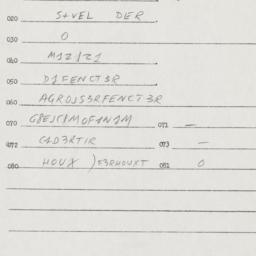 020 S+VEL DER
030 O
040 M1Z/Z1
050 D1FENCT3R
060 AGROJS3RFENCT3R
070 071 —
072 C4D3RTIR 073 —
080 HOUX )E3RHOUXT 081 O